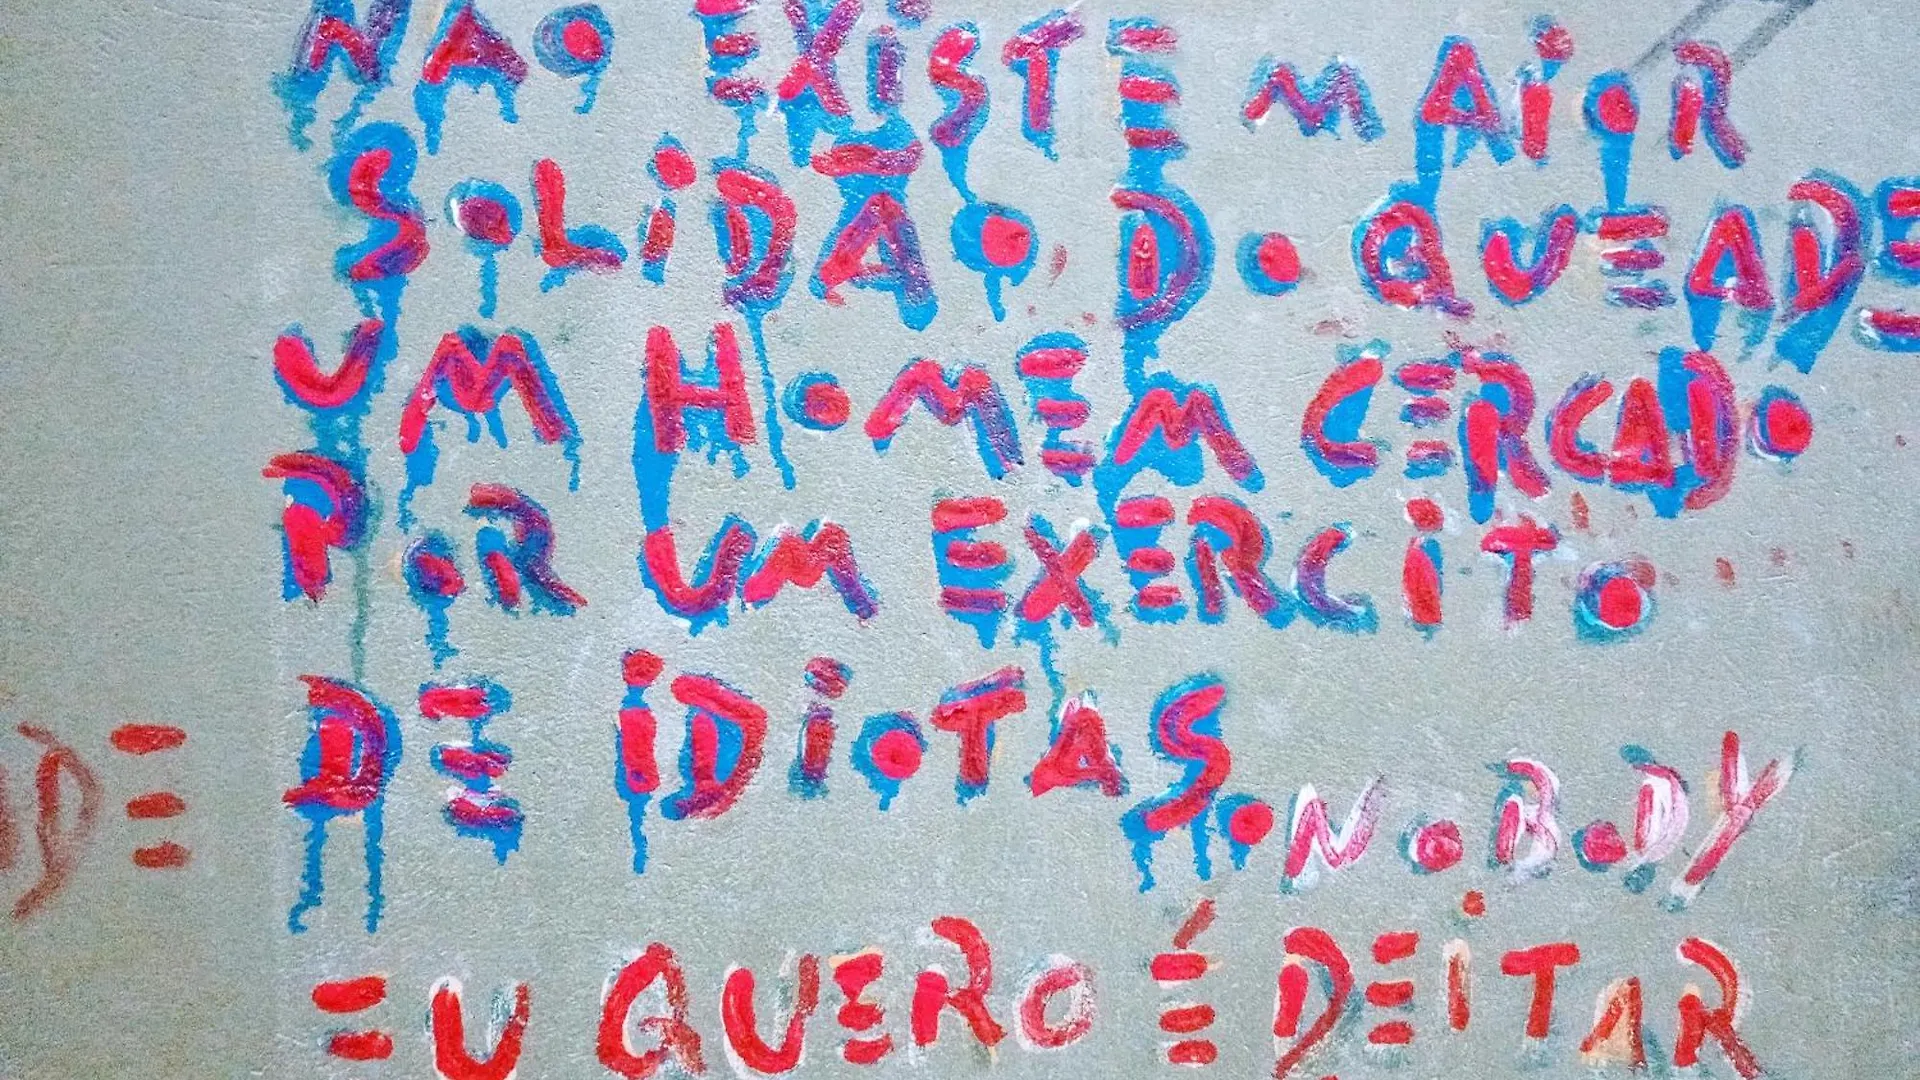 NÃO EXiSTE MAioR
SoLiDÃO, Do QUE A DE
UM HOMEM CERCADO
PoR UM EXERCiTO
DE iDioTAS. NOBODY
DE
EU QUERO É DEiTAR